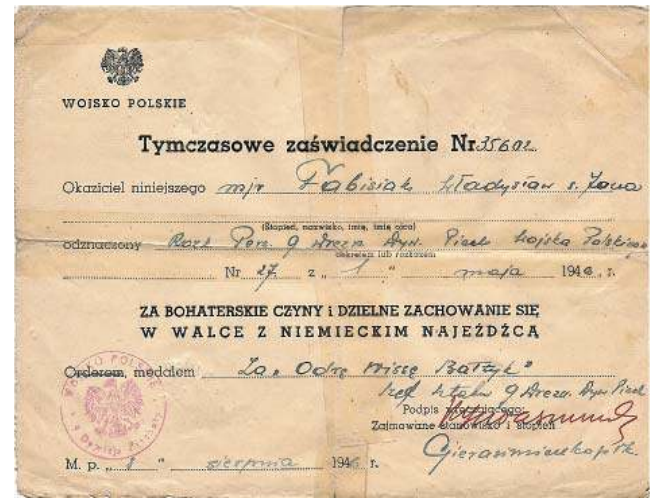 WOJSKO POLSKIE
Tymczasowe zaświadczenie Nr 35602
Okaziciel niniejszego mjr Fabisiak Władysław s. Jana
(Stopień, nazwisko, imię, imię ojca)
odznaczony Rozk Pers. 9 Drezn. Dyw. Piech Wojska Polskiego
dekretem lub rozkazem
Nr 27 z „ 1 " maja 1946 r.
ZA BOHATERSKIE CZYNY i DZIELNE ZACHOWANIE SIĘ
W WALCE Z NIEMIECKIM NAJEŹDŹCĄ
Orderem, medalem Za „Odrę Nissę Bałtyk"
Szef Sztabu 9 Drezn. Dyw Piech
Podpis
Zajmowane stanowisko i stopień
WOJSKO POLSKIE
M. p. „ 1 " sierpnia 1946 r.